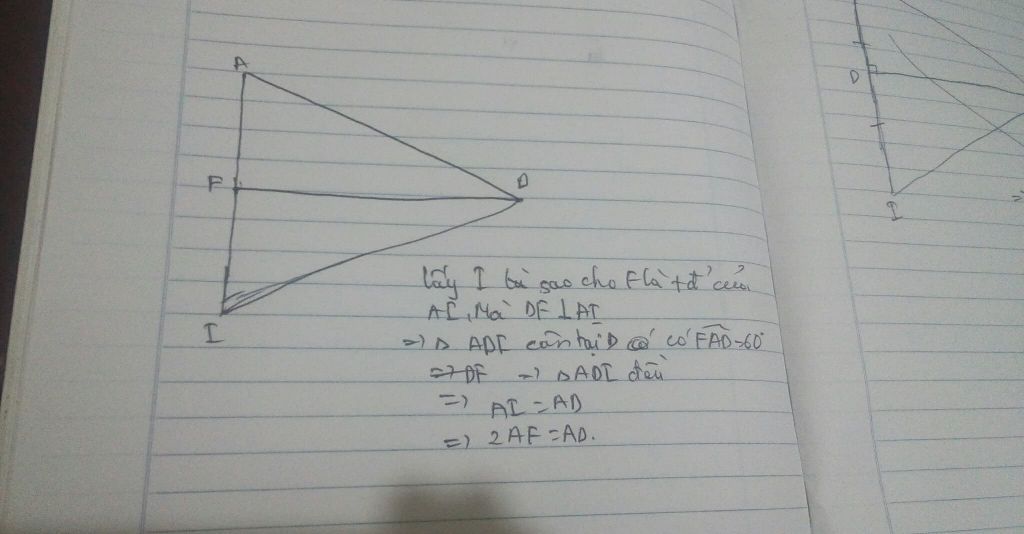 A
F
D
I
lấy I sao cho F là tđ' của
AI, Mà DF ⊥ AI
=> Δ ADI cân tại D có FAD = 60°
=> DF => Δ ADI đều
=> AI = AD
=> 2AF = AD.
D
I